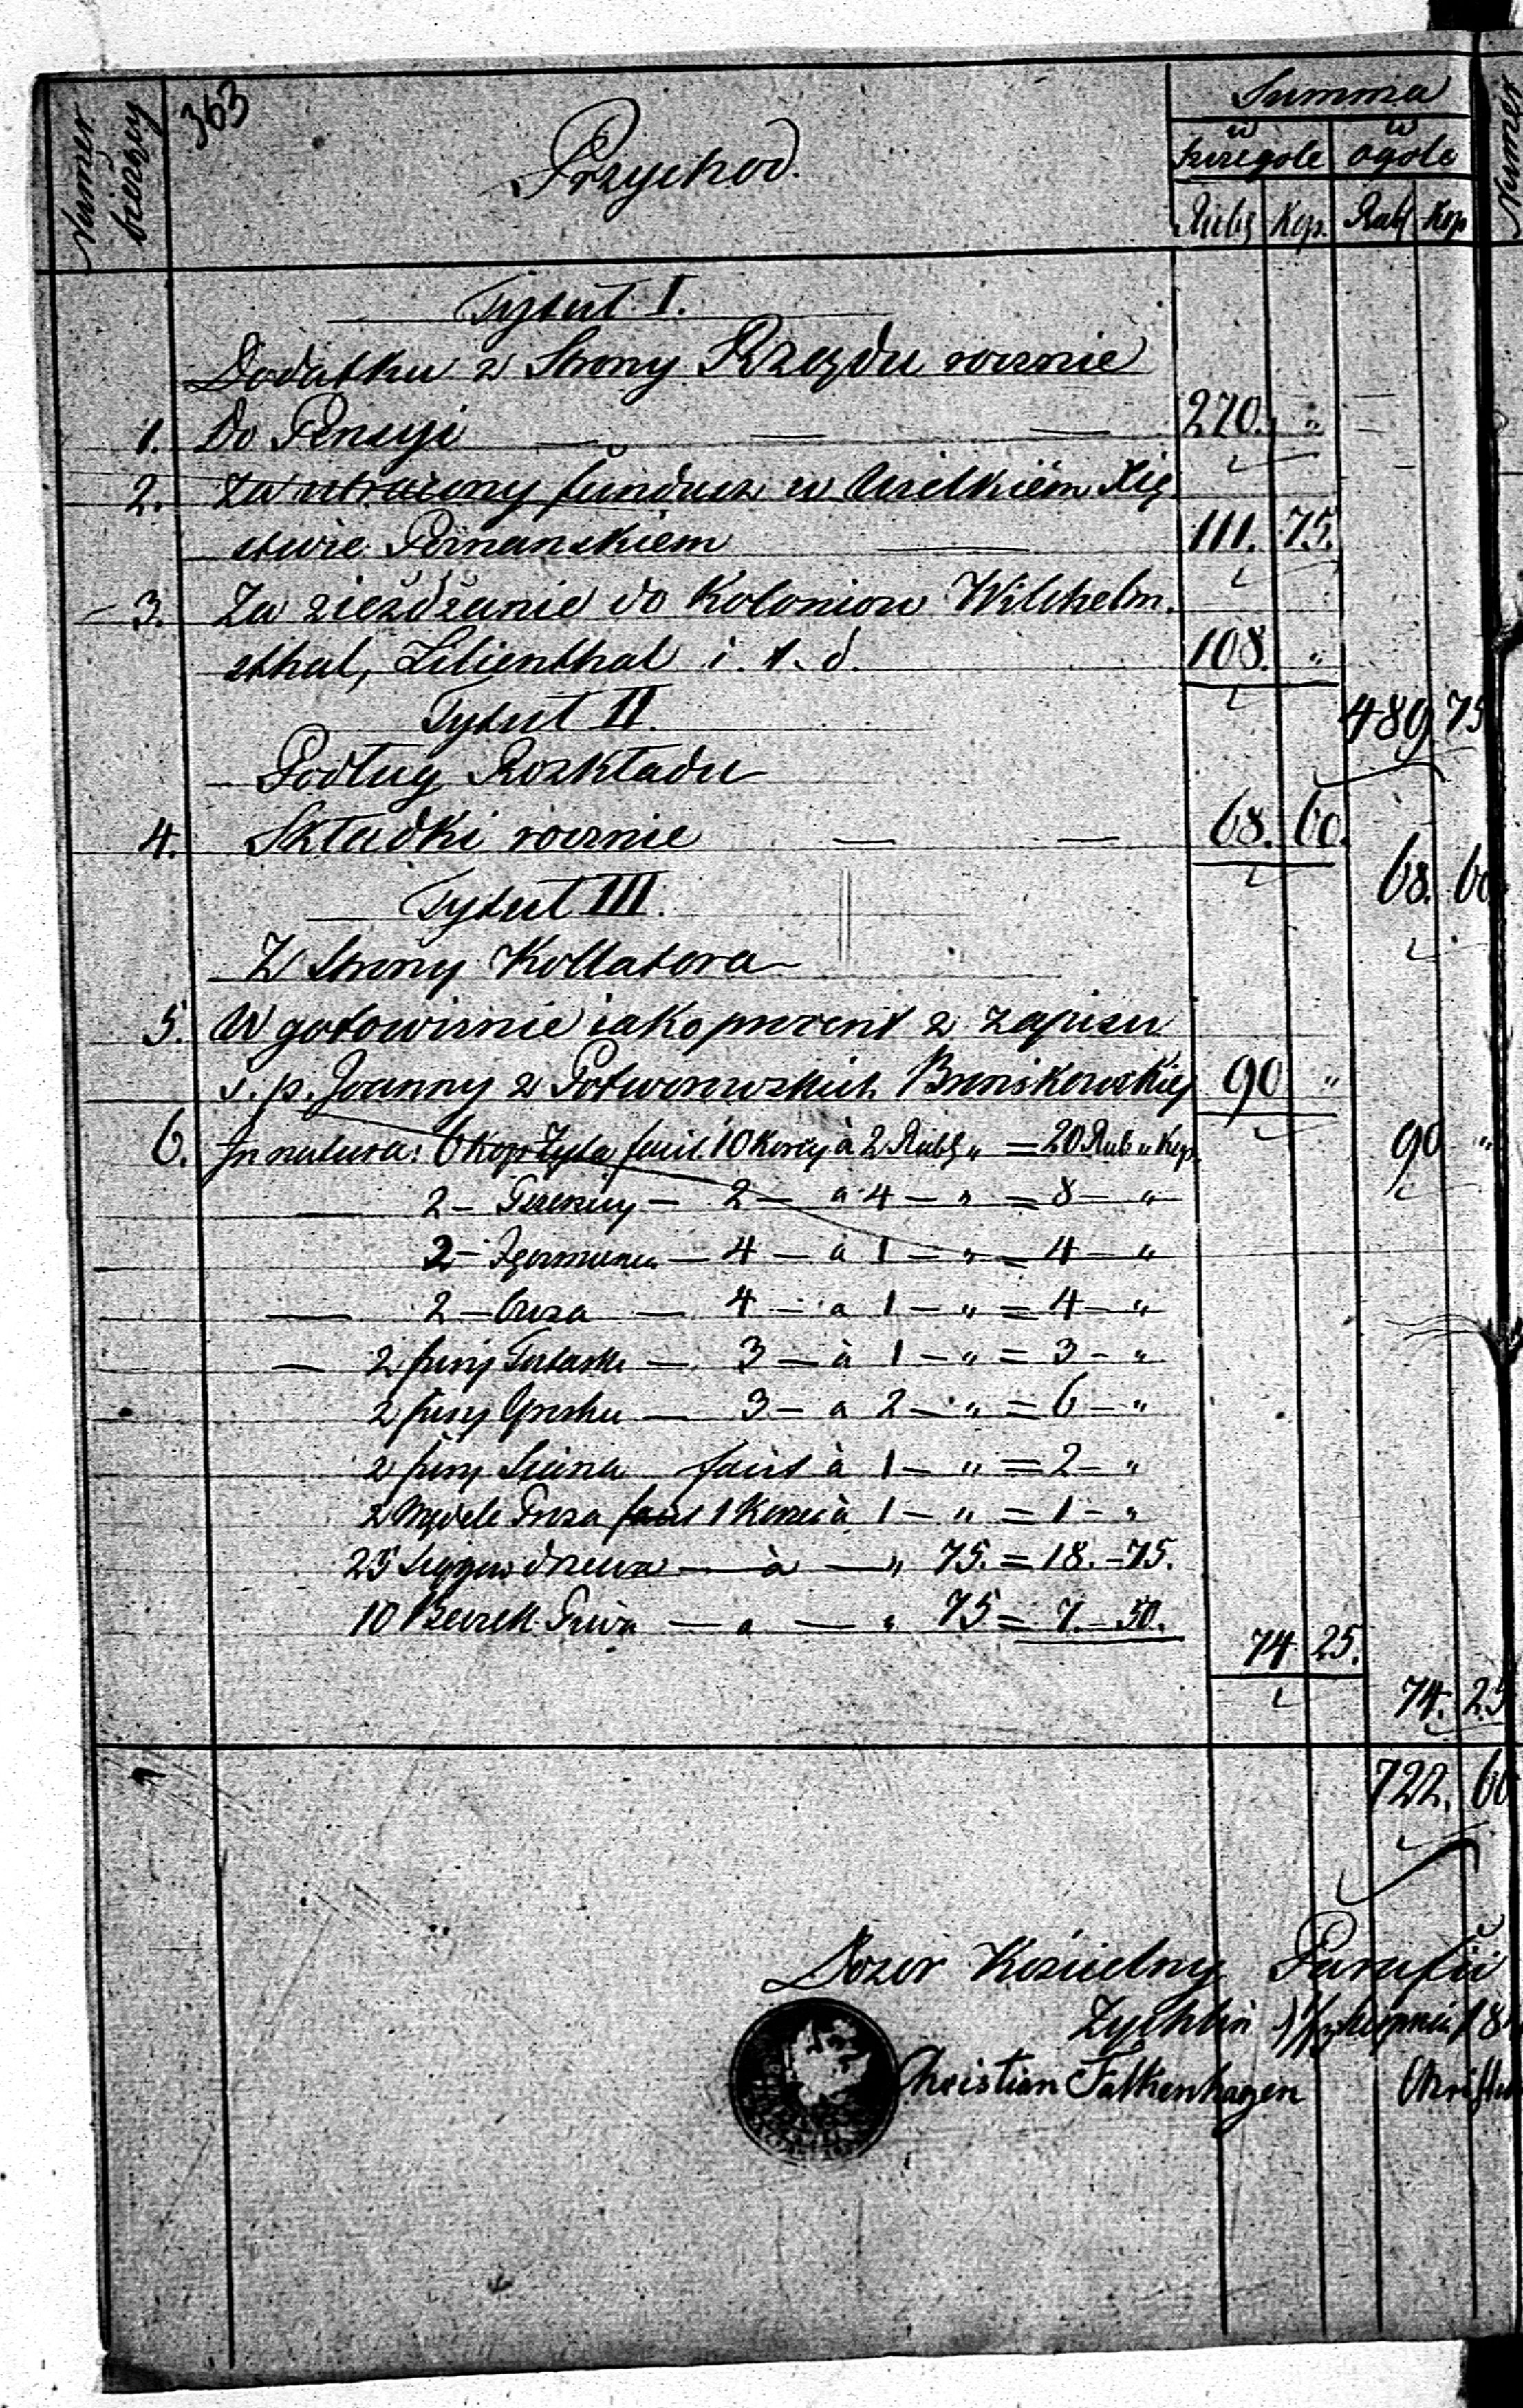 363
Numer bieżący
Przychod.
Summa
w szczegole
w ogole
Rubs Kop. Rubs Kop
Numer
Tytuł I.
Dodatku z Strony Rządu rocznie
1. Do Pensyi — — — 270. "
2. Za utracony fundusz w Wielkiém Xię
stwie Poznanskiem — 111. 75.
3. Za zieżdżanie do Koloniow Wilhelm.
sthal, Lilienthal i. t. d. 108. "
489 75
Tytuł II.
Podług Rozkładu
4. Składki rocznie — — 68. 60.
68. 60
Tytuł III.
Z Strony Kollatora
5. W gotowiznie iako procent z zapisu
ś. p. Joanny z Potworowskich Bronikowskiej 90 "
90 "
6. In natura: 6 Kop Żyta facit 10 Korcy à 2 Rubs " = 20 Rub " Kop.
2 — Pszenicy — 2 — a 4 — " = 8 — "
2 — Jęczmienia — 4 — à 1 — " = 4 — "
2 — Owsa — 4 — a 1 — " = 4 — "
2 fury Tatarki — 3 — à 1 — " = 3 — "
2 fury Grochu — 3 — a 2 — " = 6 — "
2 fury Siana facit à 1 — " = 2 — "
2 Prosa facit 1 Korzec à 1 — " = 1 — "
25 Sążni drzewa — à — " 75. = 18. — 75.
10 Beczek Piwa — a — " 75 = 7. — 50.
74 25.
74. 25
722. 60
Dozór Kościelny Parafii
Zychlin
Christian Falkenhagen